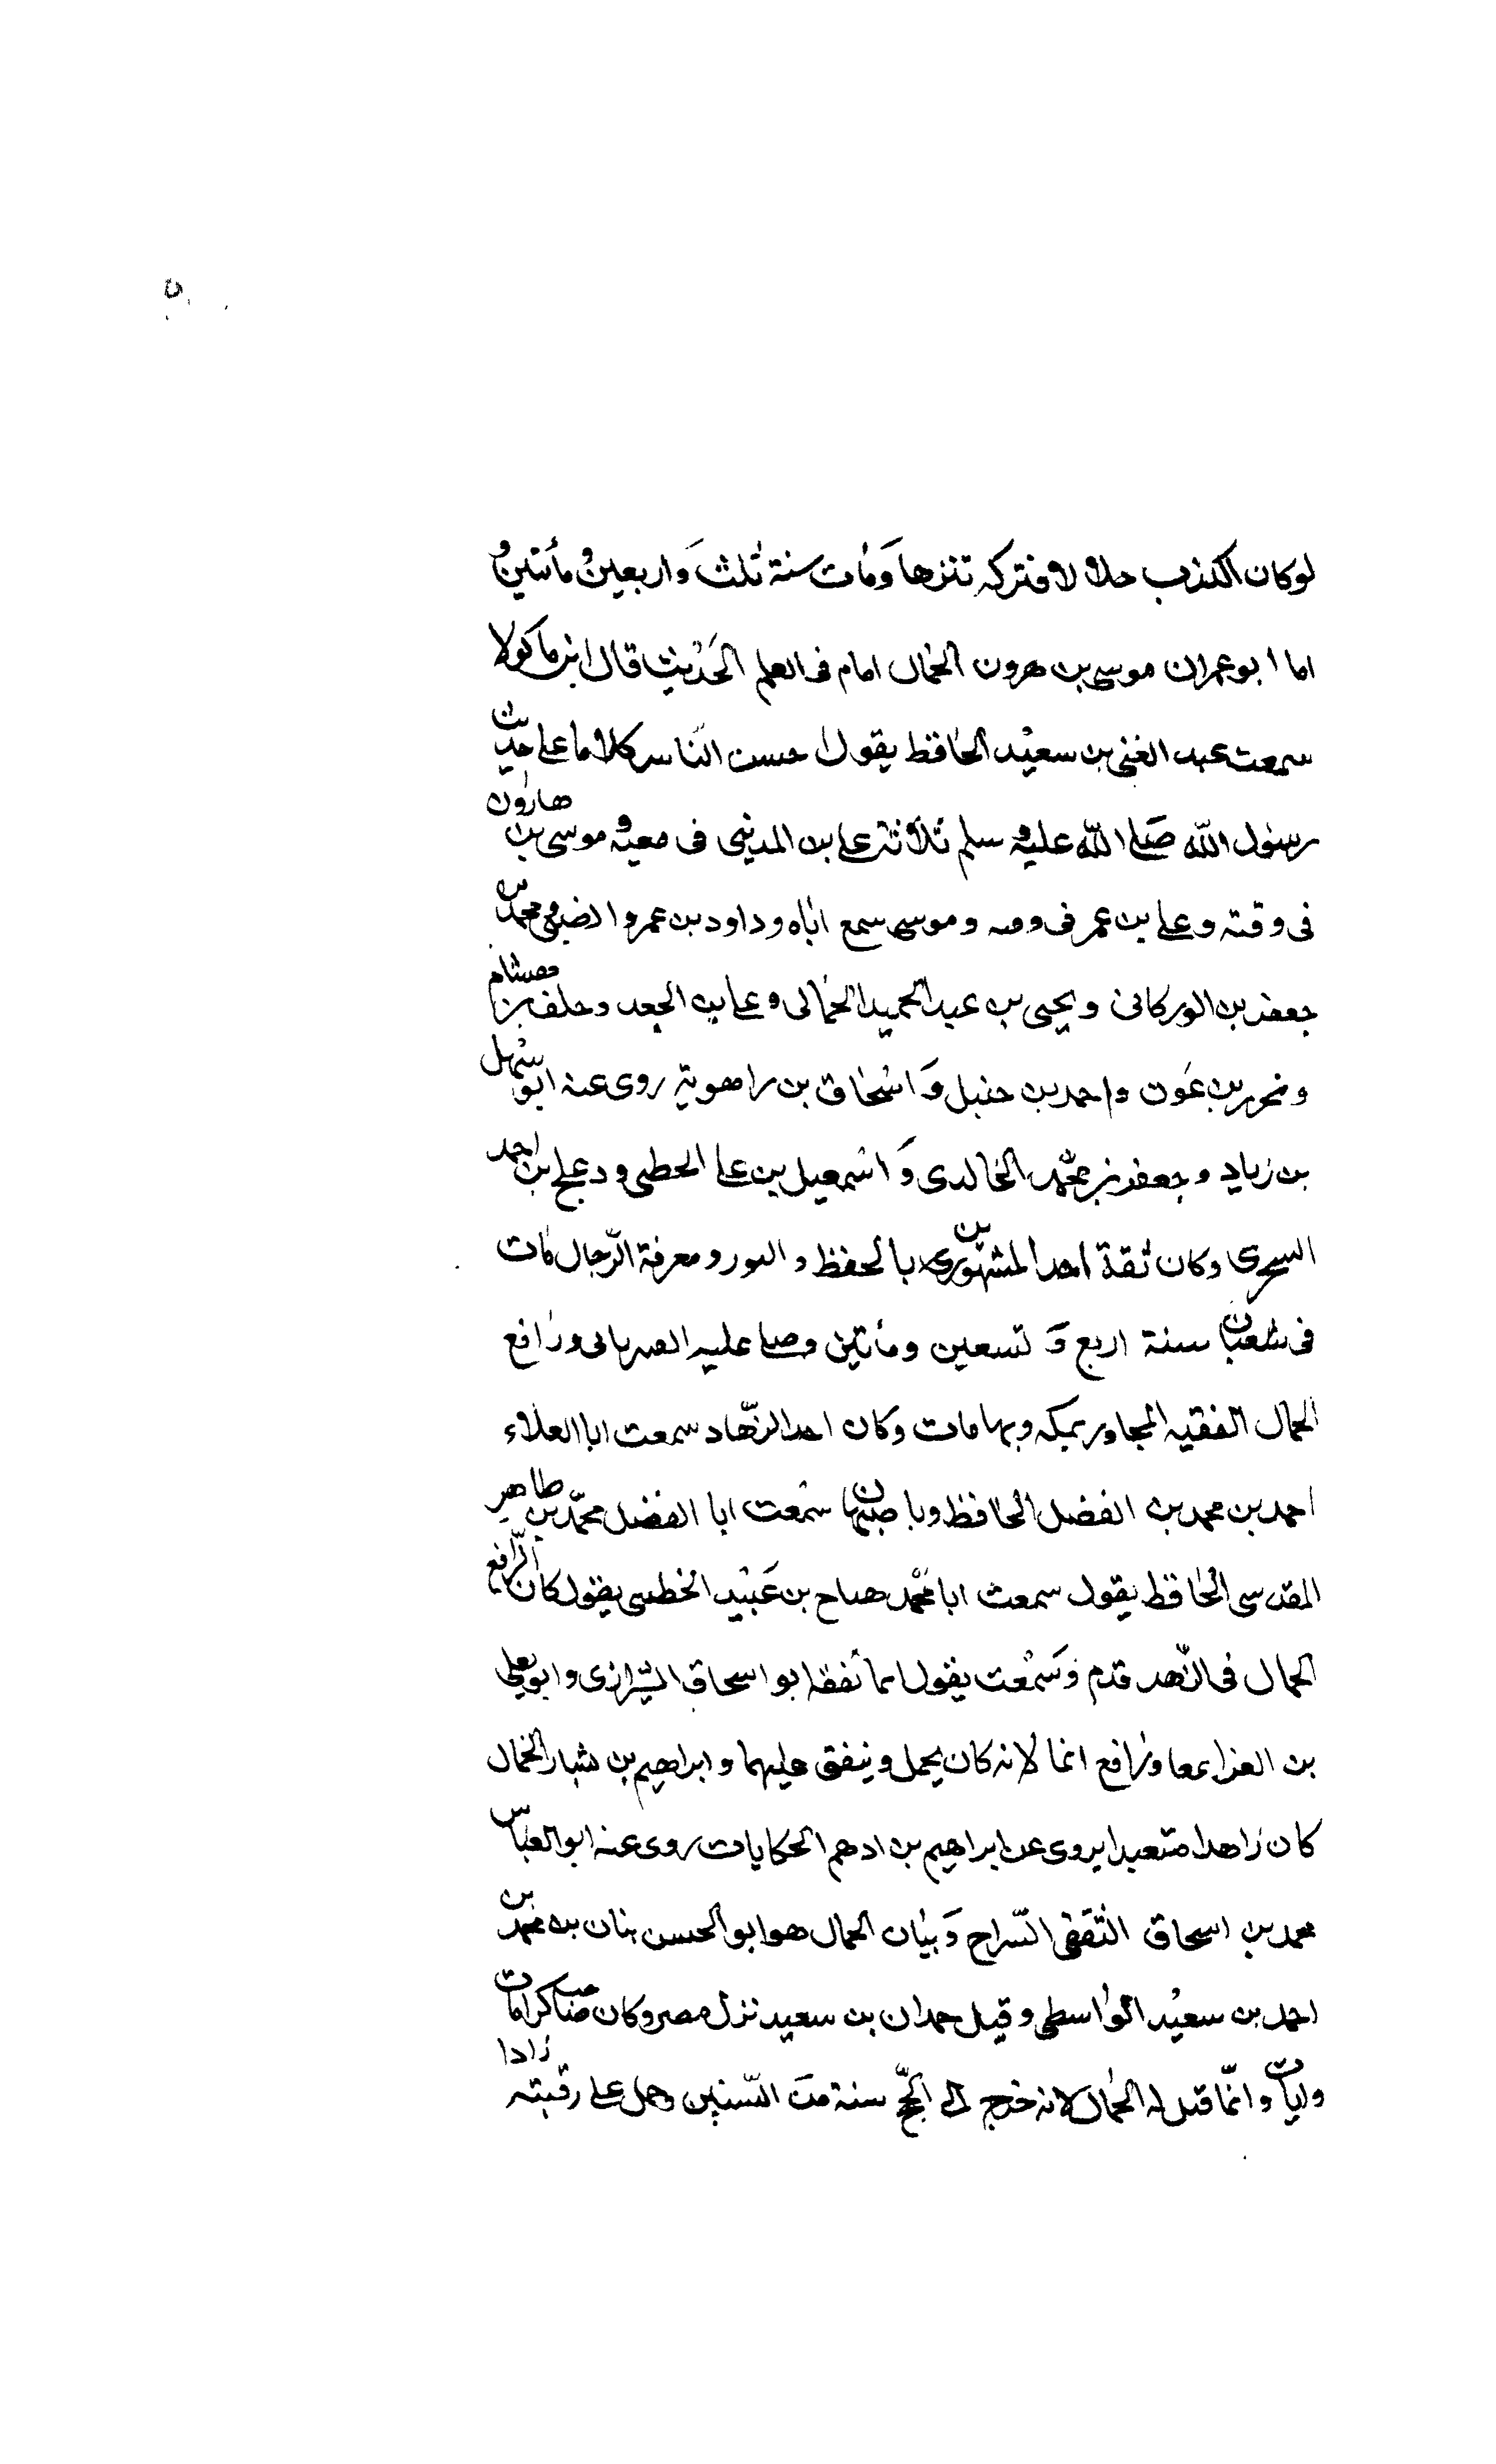 لوكان الكذب حلالا لا فتركه تنزها وَمات سنة ثلث وَاربعين ومأتين و
اما ابو عمران موسى بن هرون الحمال امام فى العلم الحَديث قال ابن ماكولا
سمعت عبد الغنى بن سعيد الحافظ يقول احسن النّاس كلاما على حديث
رسول اللّه صَلى اللّه عليه و سلم ثلاثة على بن المدينى فى معيه و موسى بن هارون
فى وقته و على بن عمر فى ومه و موسى سمع اباه و داود بن عمرو الضبى محمد بن
جعفر بن الوركانى و يحيى بن عبد الحميد الحمالى و على بن الجعد و خلف بن هشام
و محرر بن عَون و احمد بن حنبل وَ اسحاق بن راهوية روى عنه ابو سهل
بن زياد و جعفر بن محمّد الخالدى وَ اسمعيل بن على الحطى و دعلج بن احمد
السحرى وكان ثقة احد المشهورين بالحفظ و الور و معرفة الرّجال مات
فى شعبان سنة اربع وَ تسعين و مأتين وصلى عليه الصرىانى و رافع
الحمال الفقيه المجاور بمكه و بها مات وكان احد الزهّاد سمعت ابا العلاء
احمد بن محمد بن الفضل الحافظ و باصبهان سمعت ابا الفضل محمّد بن طاهر
المقدسى الحافظ يقول سمعت ابا محمّد هياج بن عَبيد الخطىى يقول كان الرّافع
الحمال فى الزّهد قدم وَسمعت يقول اىما تفقه ابو اسحاق الشّيرازى و ابو يعلى
بن الفرا بمعاو نرافع انما لانه كان يحمل و ينفق عليهما و ابراهيم بن بشار الخمال
كان زاهدا متعبدا يروى عن ابراهيم بن ادهم الحكايات روى عنه ابو العباس
محمد بن اسحاق الثقفى السّراح وَ بيان الحمال هو ابو الحسن بنان بن محمد بن
احمد بن سعيد الواسطى و قيل حمدان بن سعيد نزل مصر وكان صاحب كرامات
و ايات و انّما قيل له الحمال لانه خرج الى الحجّ سنة من السّنين وحمل على رقبته زادا